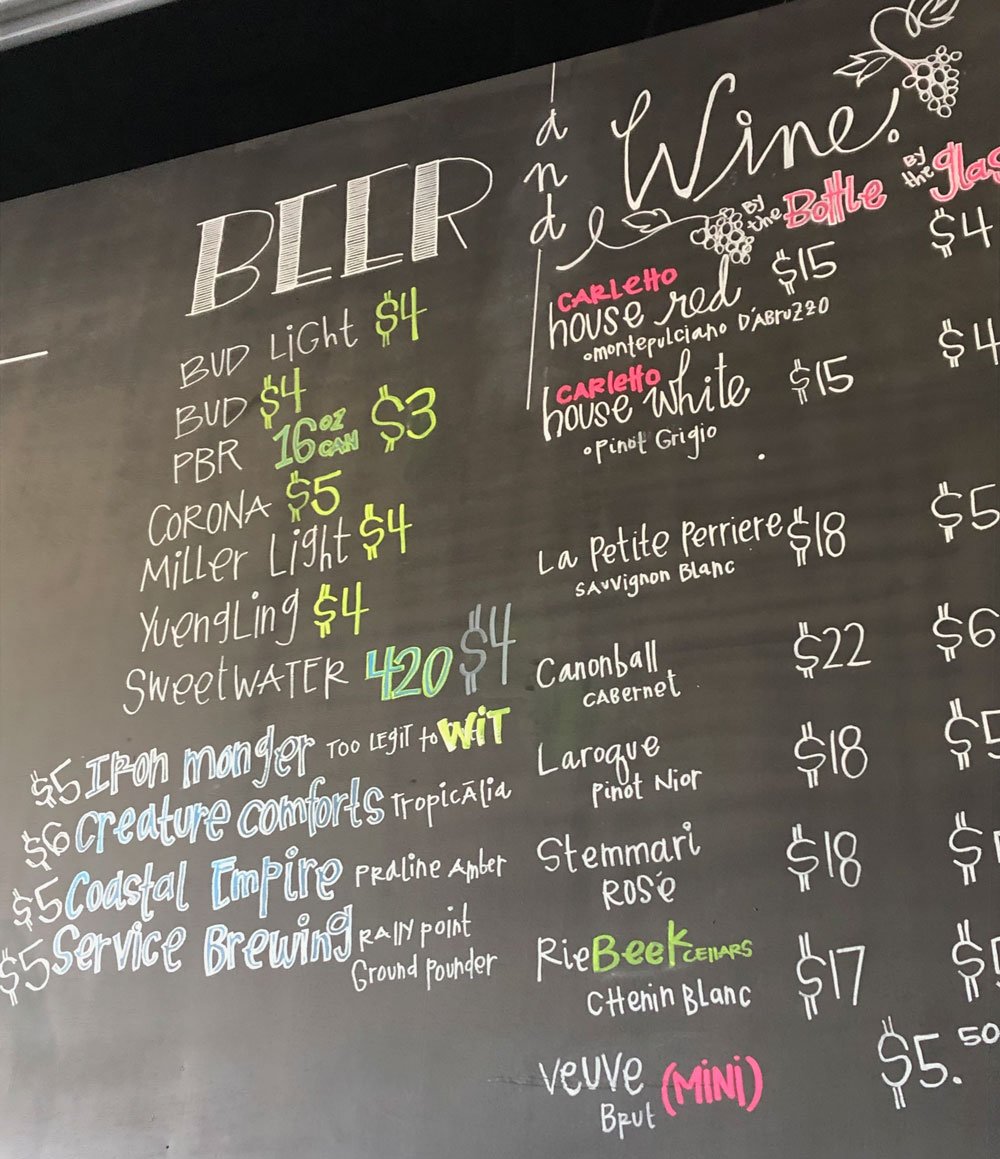 BEER
BUD LiGHT $4
BUD $4
PBR 16 OZ CAN $3
CORONA $5
Miller Light $4
YuengLing $4
SweetWATER 420 $4
$5 IRon monger TOO LEGIT to WiT
$6 Creature comforts TropicĀlia
$5 Coastal Empire PRaline Amber
$5 Service Brewing RAllY point
Ground Pounder
and
Wine!
BY the Bottle BY the glas
CARLetto
house red $15 $4
montepulciano D'ABruzzo
CARletto
house white $15 $4
Pinot Grigio
La Petite Perriere $18 $5
SAuvignon Blanc
Canonball $22 $6
CABernet
Laroque $18 $5
Pinot Nior
Stemmari $18 $
ROSÉ
RieBeek CEllARS $17 $
CHenin BLanc
Veuve (MiNi) $5.50
BRut